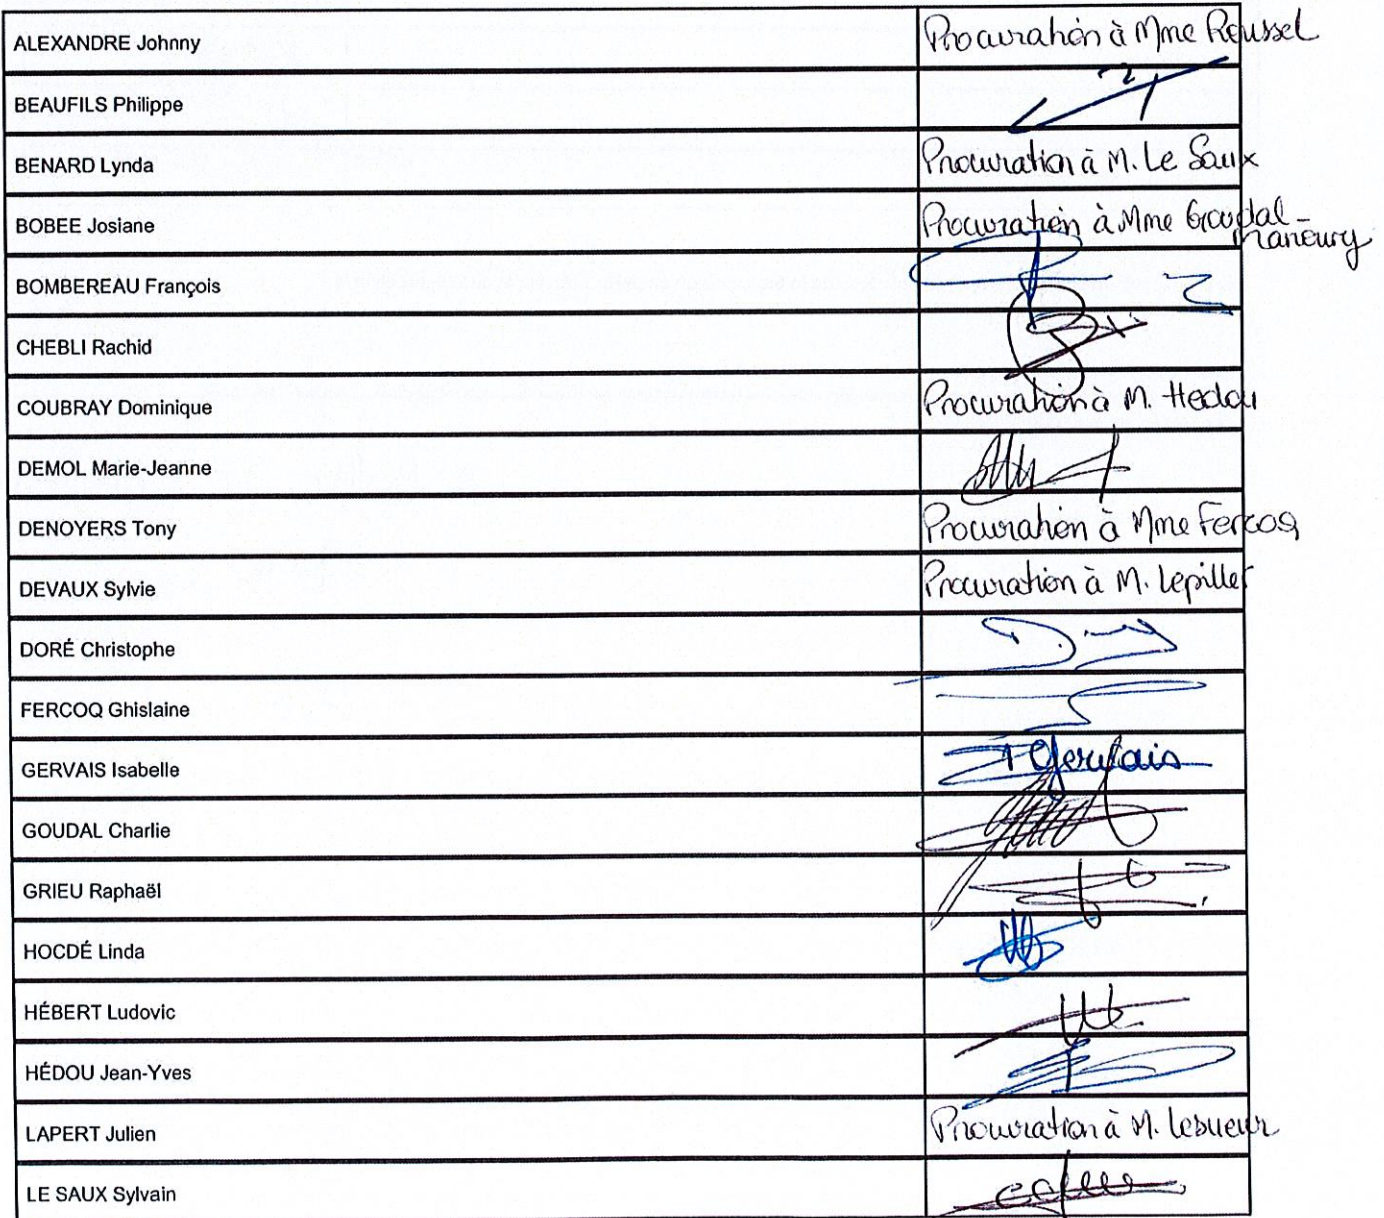 ALEXANDRE Johnny Procuration à Mme Roussel
BEAUFILS Philippe
BENARD Lynda Procuration à M. Le Saux
BOBEE Josiane Procuration à Mme Goudal-
Maneury
BOMBEREAU François
CHEBLI Rachid
COUBRAY Dominique Procuration à M. Hedou
DEMOL Marie-Jeanne
DENOYERS Tony Procuration à Mme Fercoq
DEVAUX Sylvie Procuration à M. Lepillet
DORÉ Christophe
FERCOQ Ghislaine
GERVAIS Isabelle Gervais
GOUDAL Charlie
GRIEU Raphaël
HOCDÉ Linda
HÉBERT Ludovic
HÉDOU Jean-Yves
LAPERT Julien Procuration à M. Lesueur
LE SAUX Sylvain